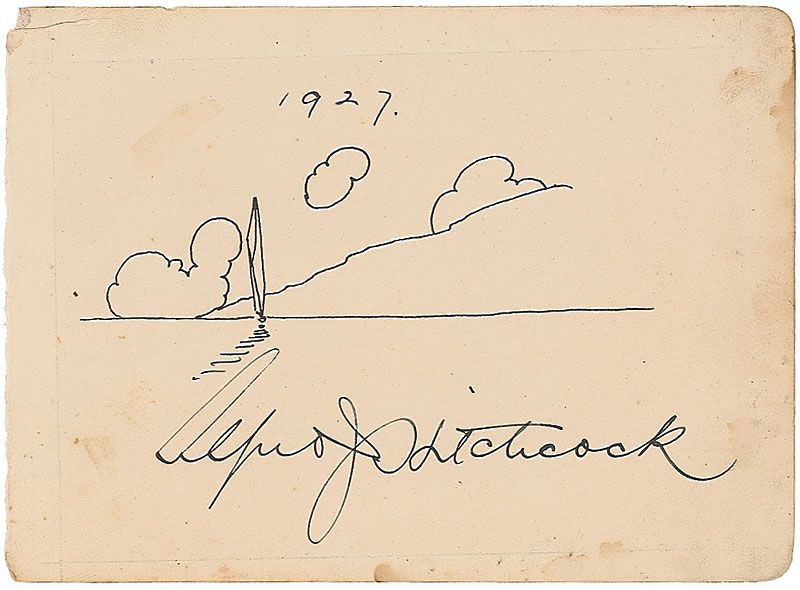 1927.
Alfred J Hitchcock